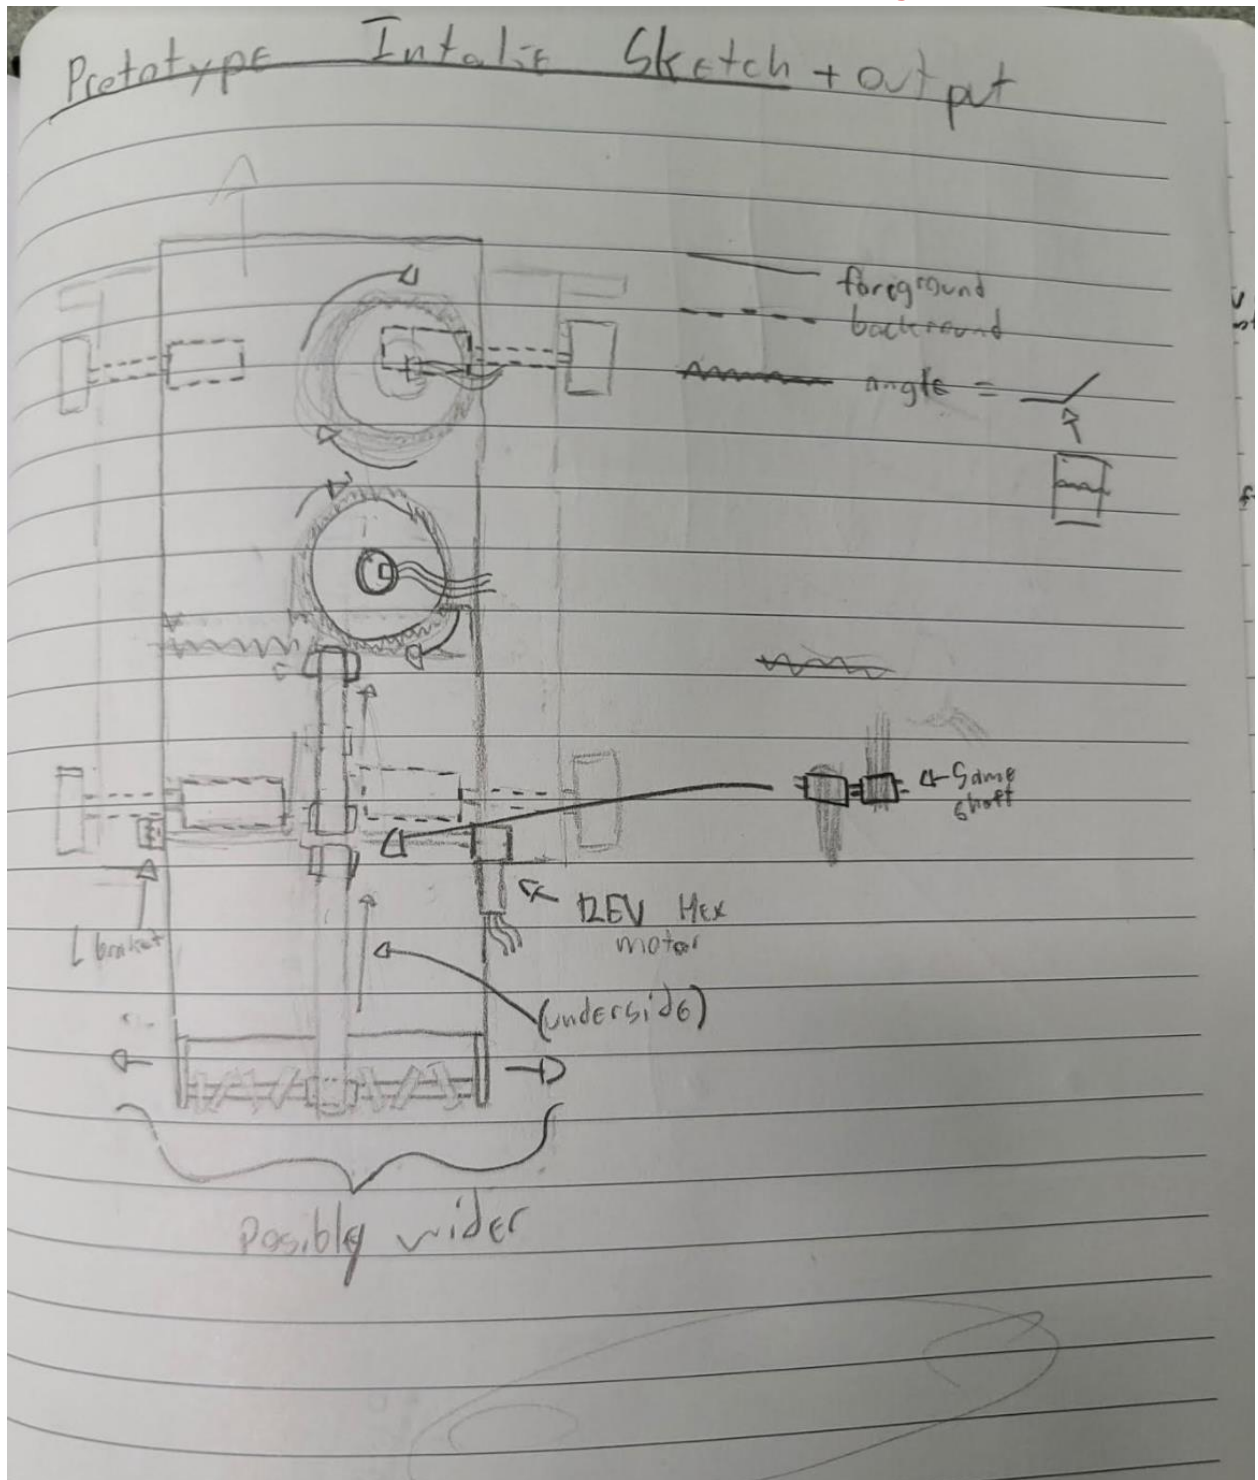 Prototype Intake Sketch + output
foreground
backround
angle =
Same
shaft
REV Hex
motor
L braket
(underside)
Posibly wider